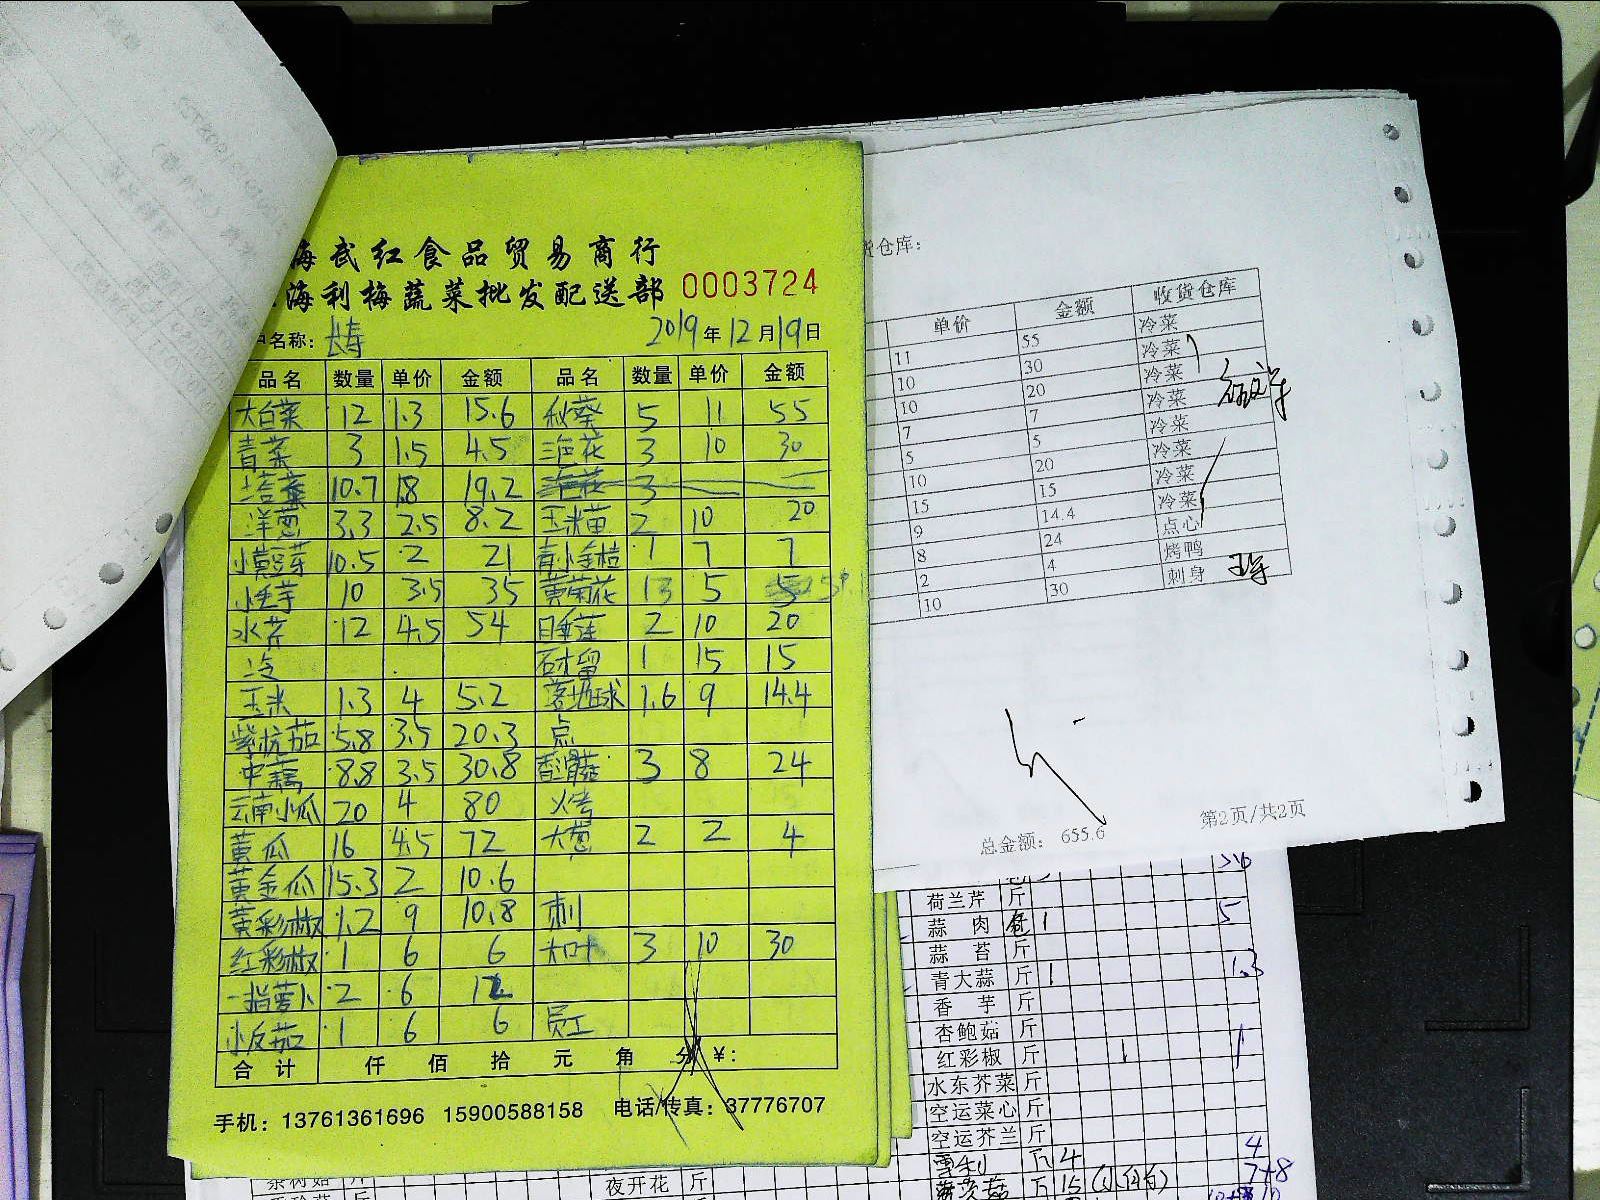 海武红食品贸易商行
海利梅蔬菜批发配送部 0003724
户名称: 长寿 2019年12月19日
品名 数量 单价 金额 品名 数量 单价 金额
大白菜 12 1.3 15.6 秋葵 5 11 55
青菜 3 1.5 4.5 三色花 3 10 30
塔菜 10.7 1.8 19.2 3
洋葱 3.3 2.5 8.2 玉米苗 2 10 20
小黄豆芽 10.5 2 21 青小金桔 1 7 7
小毛芋 10 3.5 35 黄菊花 13 5 5
水芹 12 4.5 54 睡莲 2 10 20
冷 石榴 1 15 15
玉米 1.3 4 5.2 落地球 1.6 9 14.4
紫杭茄 5.8 3.5 20.3 点
中藕 8.8 3.5 30.8 3 8 24
云南小瓜 20 4 80 火烤
黄瓜 16 4.5 72 大葱 2 2 4
黄金瓜 15.3 2 10.6
黄彩椒 1.2 9 10.8 刺
红彩椒 1 6 6 大叶 3 10 30
一指萝卜 2 6 12
小反茄 1 6 6 员工
合计 仟 佰 拾 元 角 分 ¥:
手机: 13761361696 15900588158 电话/传真: 37776707
货仓库:
单价 金额 收货仓库
11 55 冷菜
10 30 冷菜
10 20 冷菜
7 7 冷菜
5 5 冷菜
10 20 冷菜
15 15 冷菜
9 14.4 冷菜
8 24 点心
2 4 烤鸭
10 30 刺身
总金额: 655.6 第2页/共2页
荷兰芹 斤
蒜肉 包 1 5
蒜苔 斤
青大蒜 斤 1 1.3
香芋 斤
杏鲍菇 斤
红彩椒 斤 1 1
水东芥菜 斤
空运菜心 斤
空运芥兰 斤 4
雪利 4 7+8
15
茶树菇 斤 夜开花 斤